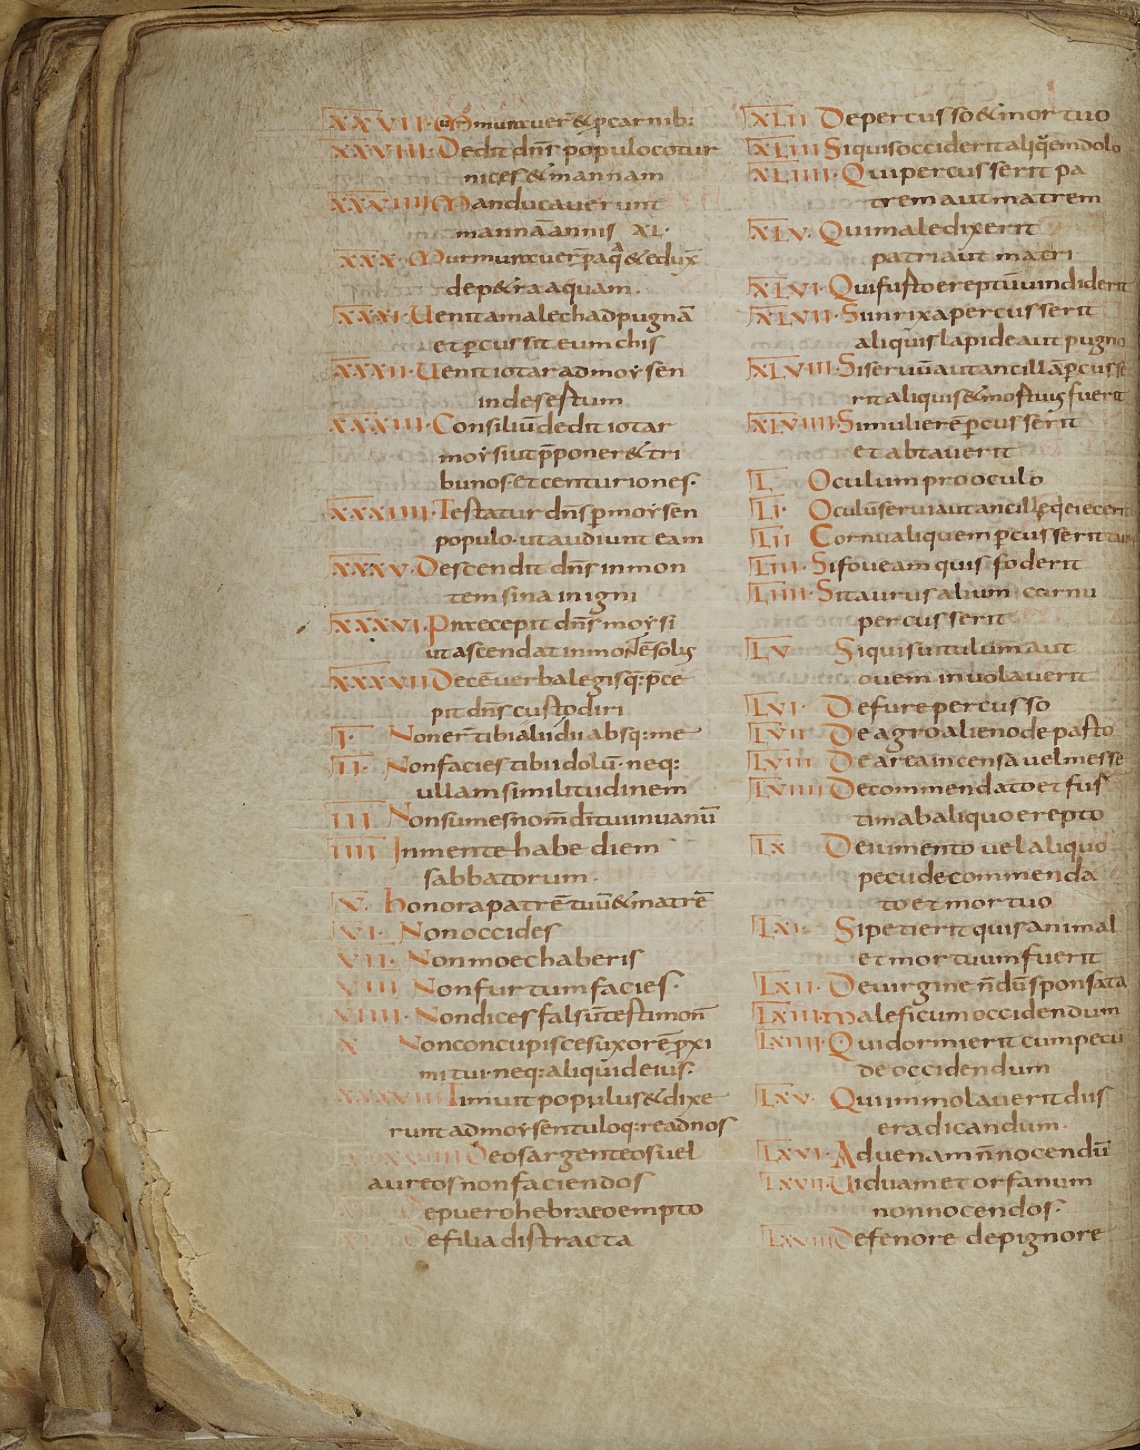 XXVII· Murmurauer̄ & p̄ carnib:
XXVIII· Dedit dn̄s populo cotur
nices & mannam
XXVIIII Manducauerunt
mannā annis XL·
XXX· Murmurauer̄ p̄ aquā & edux̄
de p&ra aquam·
XXXI· Uenit amalech ad pugnā
et p̄cussit eum ihis
XXXII· Uenit iotar ad moysen
inde sestum
XXXIII· Consiliū dedit iotar
moysi ut p̄poner& tri
bunos· et centuriones·
XXXIIII· Testatur dn̄s p̄ moysen
populo· ut audiunt eam
XXXV· Descendit dn̄s in mon
tem sina in igni
XXXVI· Praecepit dn̄s moysi
ut ascendat in montē solus
XXXVII Decē uerba legis q: p̄ce
pit dn̄s custodiri
I· Non er̄ tibi alii dii absq: me
II· Non facies tibi idolū· neq:
ullam similitudinem
III Non sumes nom̄ dī tui in uanū
IIII In mente habe diem
sabbatorum·
V· Honora patrē tuū & matrē
VI· Non occides
VII· Non moechaberis
VIII Non furtum facies·
VIIII· Non dices falsū testimon̄
X Non concupisces uxorē p̄xi
mi tui· neq: aliquid eius·
XXXVIII Timuit populus & dixe
runt ad moysen tu loq:re ad nos
XXXVIIII Deos argenteos uel
aureos non faciendos
De puero hebraeo empto
De filia distracta
XLII De percusso & mortuo
XLIII Si quis occiderit aliquē in dolo
XLIIII· Qui percusserit pa
trem aut matrem
XLV· Qui maledixerit
patri aut matri
XLVI· Qui fusto ereptū uindiderit
XLVII· Si in rixa percusserit
aliquis lapide aut pugno
XLVIII· Si seruū aut ancillā p̄cusse
rit aliquis & mostuus fuerit
XLVIIII· Si mulierē p̄cusserit
et abtauerit
L Oculum pro oculo
LI· Oculū serui aut ancillę q̄ eiecerit
LII Cornu aliquem p̄cusserit
LIII· Si foueam quis foderit
LIIII· Si taurus alium cornu
percusserit
LV Si quis uitulum aut
ouem inuolauerit
LVI· De fure percusso
LVII De agro alieno depasto
LVIII De area incensa uel messe
LVIIII De commendato et fur
tim ab aliquo erepto
LX De iumento uel aliquo
pecude commenda
to et mortuo
LXI· Si petierit quis animal
et mortuum fuerit
LXII· De uirgine n̄dū sponsata
LXIII Maleficum occidendum
LXIIII· Qui dormierit cum pecu
de occidendum
LXV· Qui immolauerit diis
eradicandum·
LXVI· Aduenam n̄ nocendū
LXVII· Uiduam et orfanum
non nocendos·
LXVIII De fenore de pignore